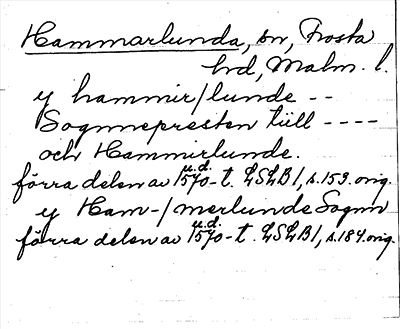 Hammarlunda, sn, Frosta
hd, Malm. l.
y hammir/lunde --
Sognneprestenn tiill ----
och Hammirlunde.
förra delen av u.d. 1570-t. LSLB1, s.159. orig.
y Ham-/merlunde Sognn
förra delen av u.d. 1570-t. LSLB1, s.184. orig.